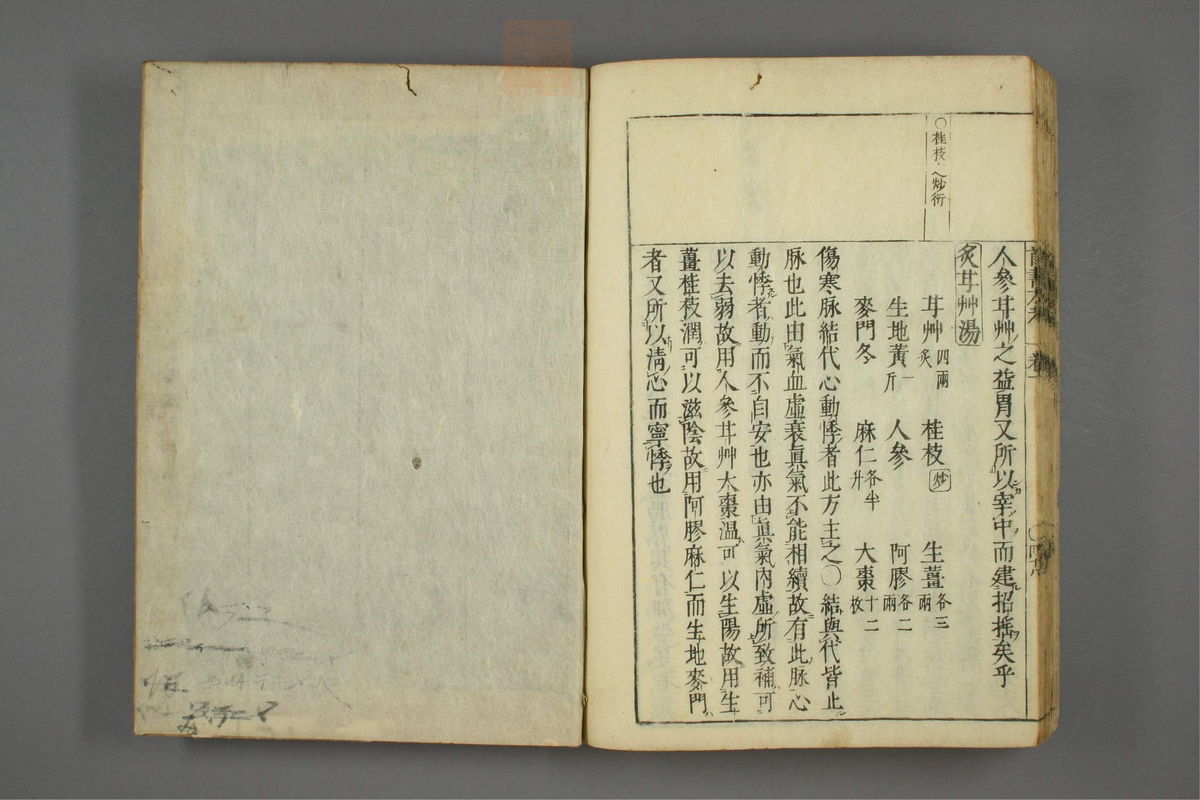 ○桂枝之炒衍
人參甘艸之益胃又所以宰中而建招揺矣乎
炙甘艸湯
甘艸四兩炙　桂枝炒　生薑各三兩
生地黄一斤　人參　阿膠各二兩
麥門冬　麻仁各半升　大棗十二枚
傷寒脉結代心動悸者此方主之○結與代皆止
脉也此由氣血虛衰眞氣不能相續故有此脉心
動悸者動而不自安也亦由眞氣內虛所致補可
以去弱故用人參甘艸大棗温可以生陽故用生
薑桂枝潤可以滋陰故用阿膠麻仁而生地麥門
者又所以清心而寧悸也